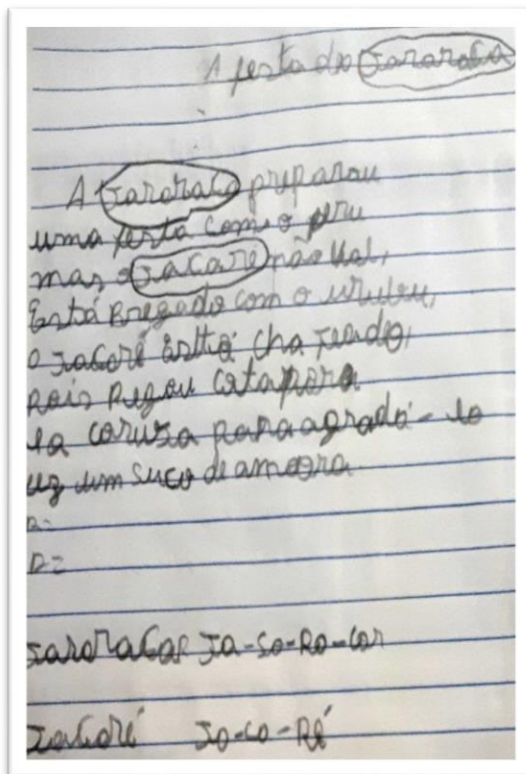 A festa da Jararaca
A Jararaca preparou
uma festa com o peru
mas o Jacaré não vai,
Está Bregado com o urubu,
o Jacaré Está chateado,
pois Pegou catapora
la coruja para agradá-lo
uz um suco de amogra.
R=
R=
Jararacar Ja-Ra-Ra-car
Jacaré Ja-ca-Ré